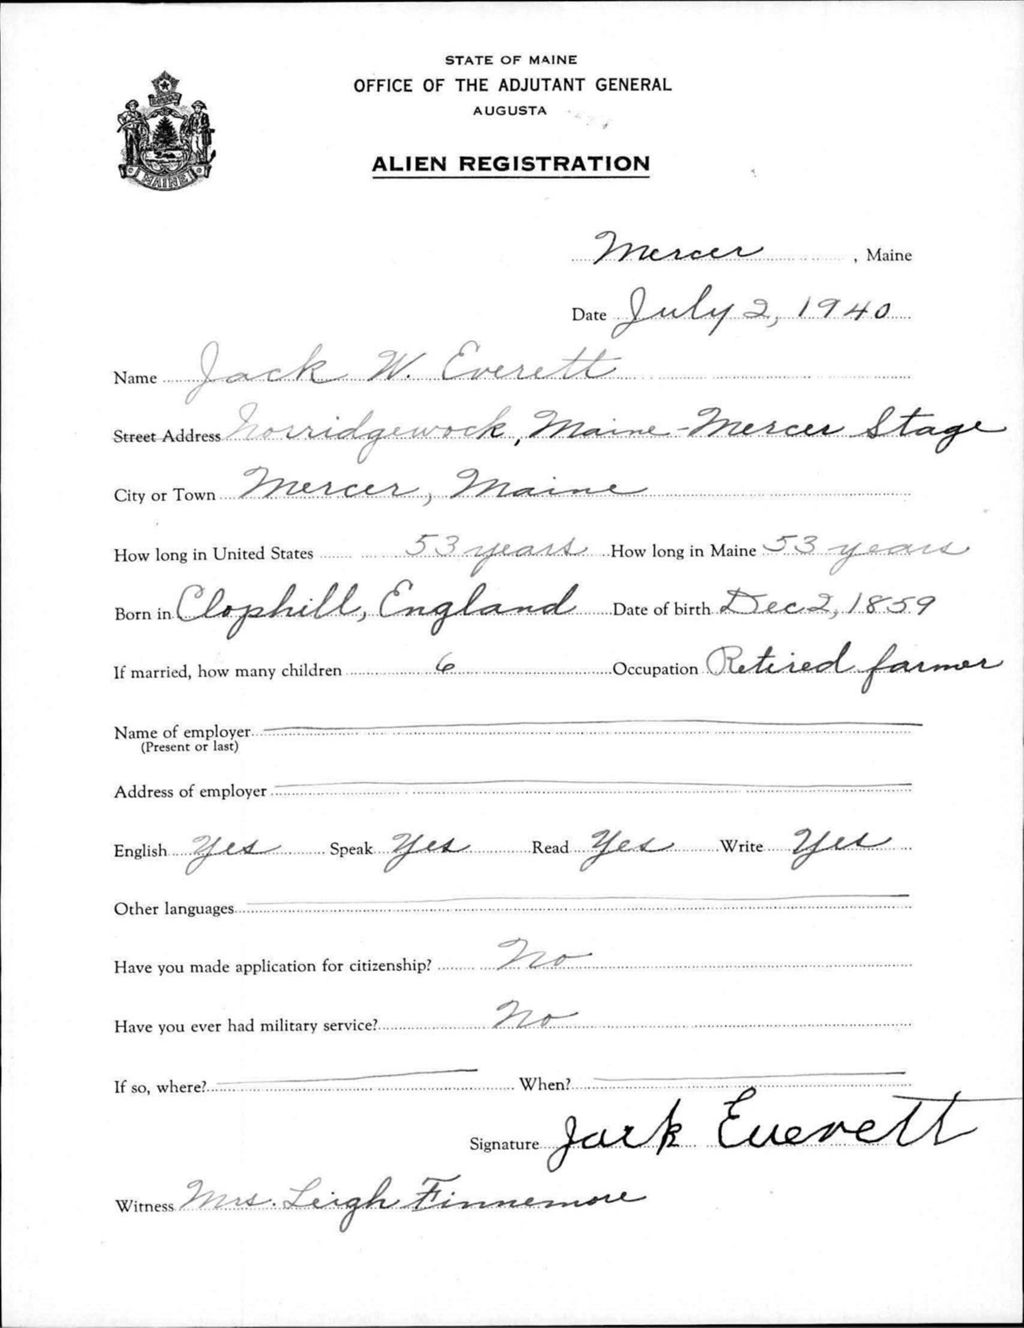 STATE OF MAINE
OFFICE OF THE ADJUTANT GENERAL
AUGUSTA
ALIEN REGISTRATION
MAINE
Mercer, Maine
Date July 2, 1940
Name Jack W. Everett
Street Address Norridgewock, Maine - Mercer Stage
City or Town Mercer, Maine
How long in United States 53 years How long in Maine 53 years
Born in Clophill, England Date of birth Dec 2, 1859
If married, how many children 6 Occupation Retired farmer
Name of employer
(Present or last)
Address of employer
English Yes Speak Yes Read Yes Write Yes
Other languages
Have you made application for citizenship? No
Have you ever had military service? No
If so, where? When?
Signature Jack Everett
Witness Mrs. Leigh Finnemore